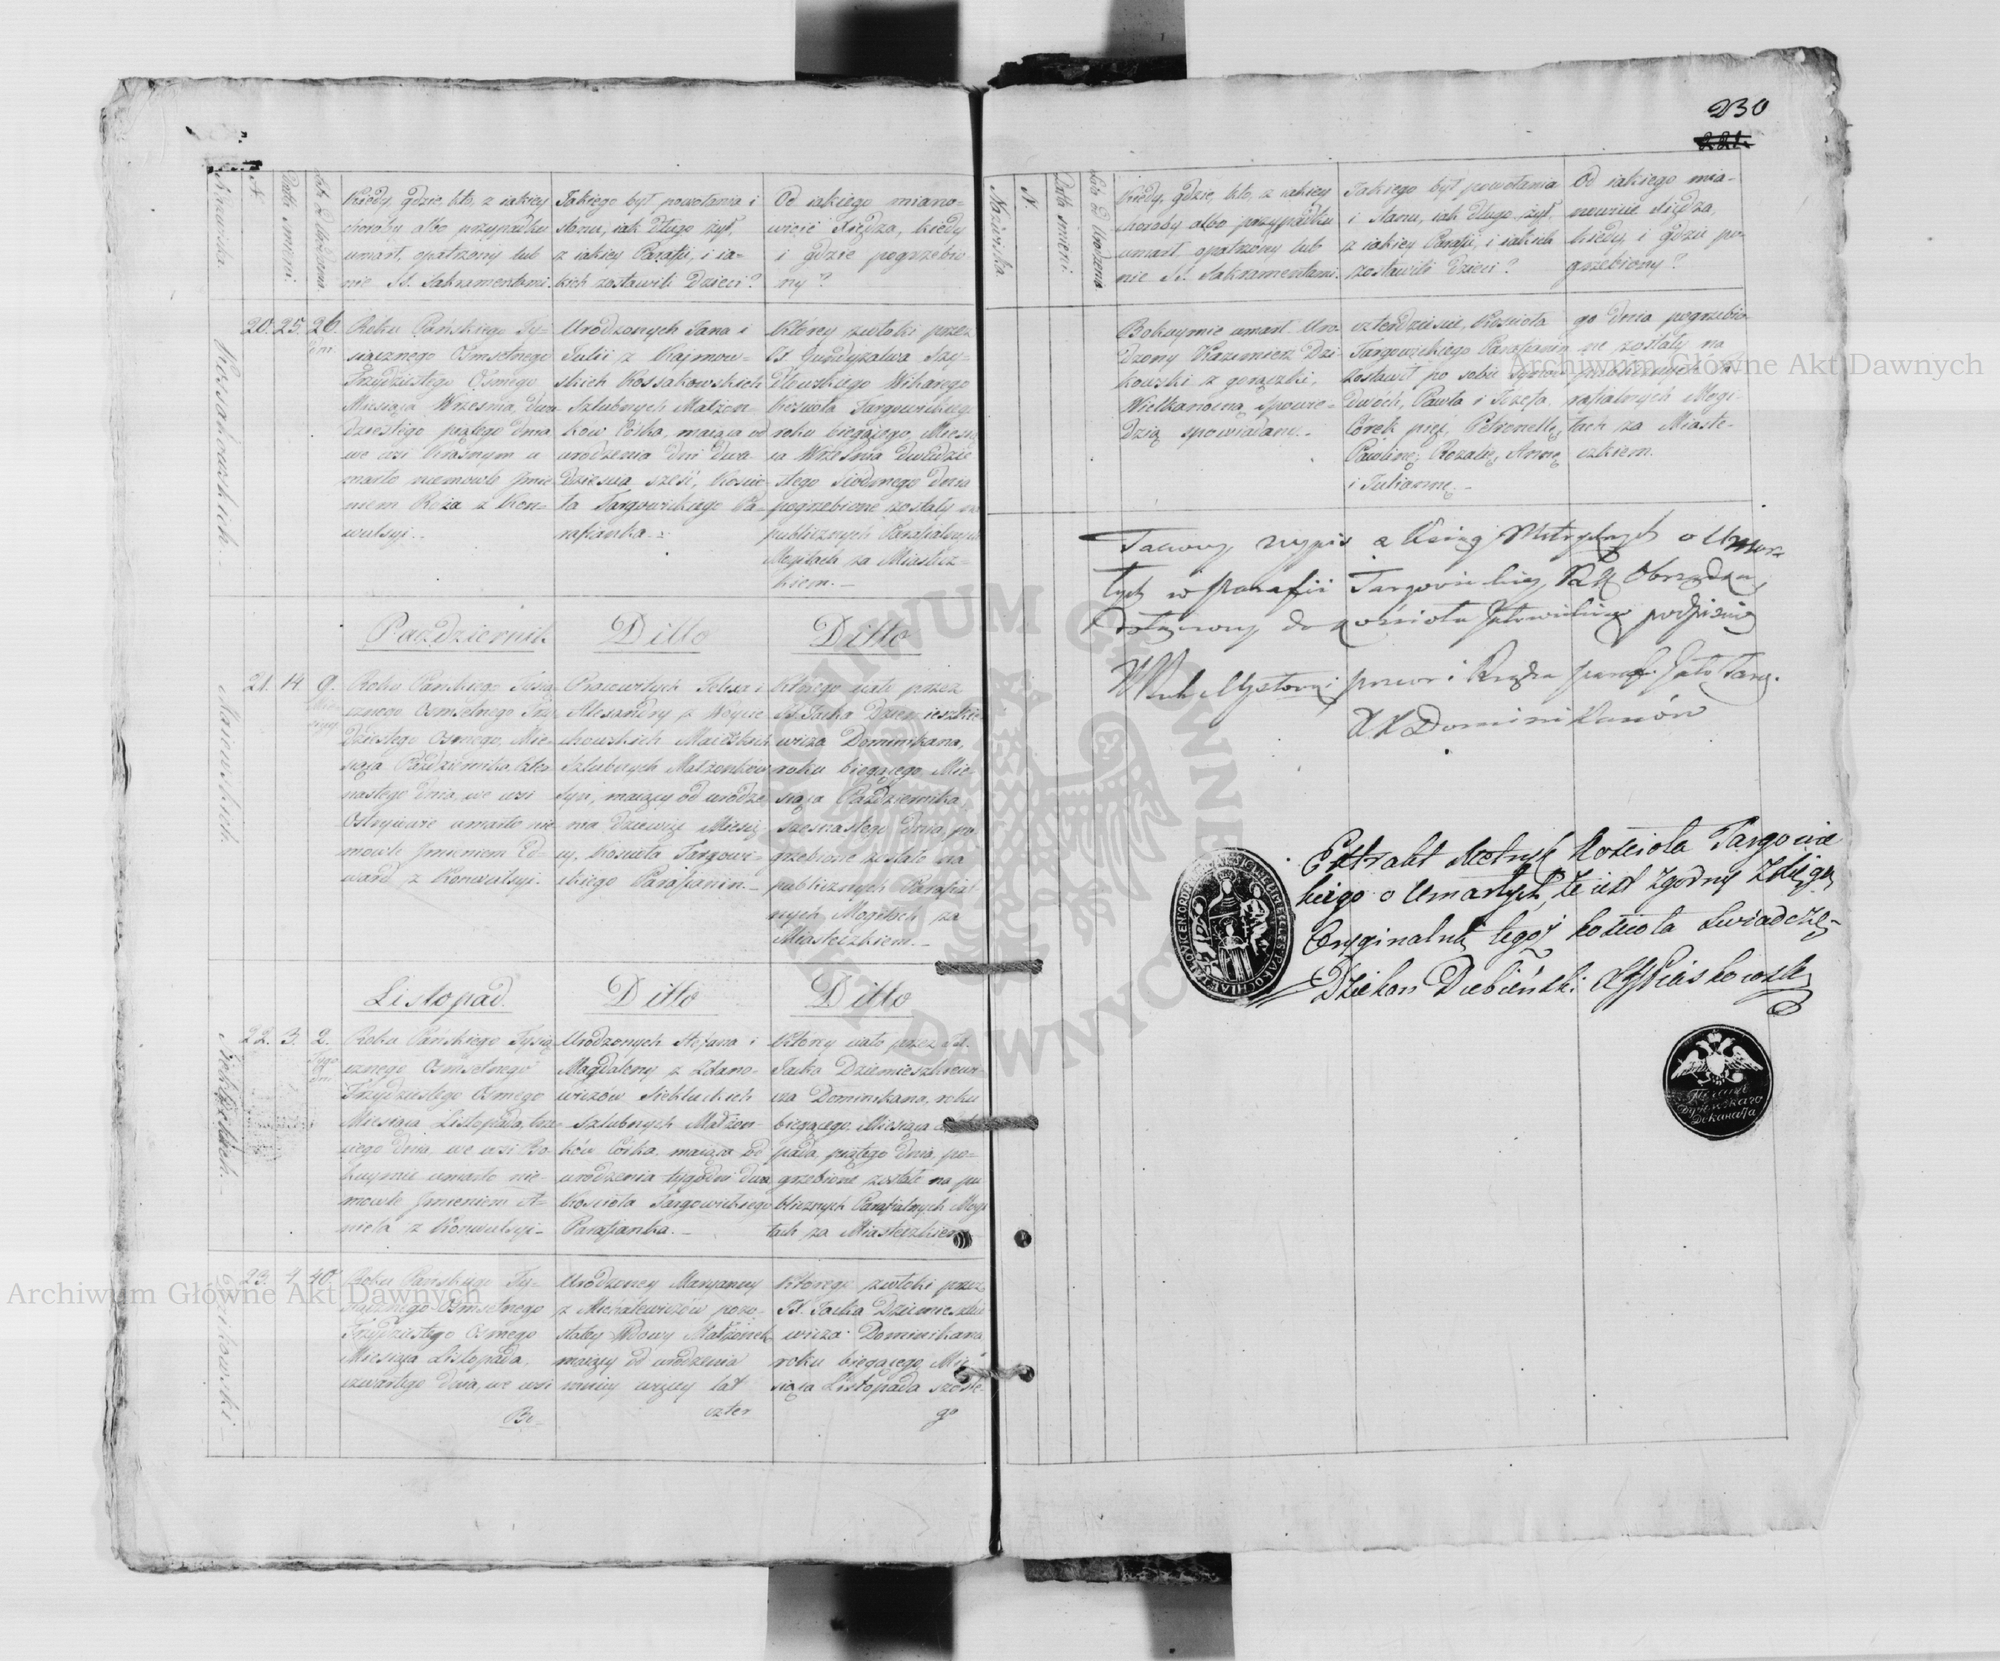 230
221.
Nazwiska.
N.
Data smierci.
Lata od Urodzenia
Kiedy, gdzie, kto, z iakiey
choroby albo przypadku
umarł, opatrzony lub
nie SS. Sakramentami.
Jakiego był powołania i
stanu, iak długo żył,
z iakiey Parafii, i ia-
kich zostawili Dzieci?
Od iakiego miano-
wicie Xiędza, kiedy
i gdzie pogrzebio-
ny?
Kossakowskich.
20. 25. 26.
dni
Roku Pańskiego Ty-
siącznego Osmsetnego
Trzydziestego Osmego
Miesiąca Września, dwu-
dziestego piątego dnia
we wsi Krasnym u-
marło niemowle Jmie-
niem Róża z Kon-
wulsyi.
Urodzonych Jana i
Julii z Kajmow-
skich Kossakowskich
Szlubnych Małżon-
ków Córka, maiąca od
urodzenia dni dwa-
dzieścia sześć, Kościo-
ła Targowickiego Pa-
rafianka.
Którey zwłoki przez
Szy-
dłowskiego Wikarego
Kościoła Targowickiego
roku biegącego, Miesią-
ca Września dwudzie-
stego siodmego dnia
pogrzebione zostały na
publicznych Parafialnych
Mogiłach za Miastecz-
kiem.
Pazdziernik.
Ditto
Ditto
Maiewskich.
21. 14. 9.
Roku Pańskiego Tysią-
cznego Osmsetnego Trzy-
dziestego Osmego, Mie-
siąca Pazdziernika, czter-
nastego dnia, we wsi
umarło nie-
mowle Jmieniem Ed-
ward z Konwulsyi.
i
Alexandry z Woycie-
chowskich
Szlubnych Małżonków
Syn, maiący od urodze-
nia dziewięć Miesię-
cy, Kościoła Targowi-
ckiego Parafianin.
Którego ciało przez
X. Jacka Dziemieszkie-
wicza Dominikana,
roku biegącego, Mie-
siąca Pazdziernika
szesnastego dnia, po-
grzebione zostało na
publicznych Parafial-
nych Mogiłach za
Miasteczkiem.
Listopad.
Ditto
Ditto
22. 3. 2.
Tygo
dni
Roku Pańskiego Tysią-
cznego Osmsetnego
Trzydziestego Osmego
Miesiąca Listopada, trze-
ciego dnia, we wsi Bo-
kuymie umarło nie-
mowle Jmieniem A-
niela z Konwulsyi.
Urodzonych Stefana i
Magdaleny z Zdano-
wiczów
Szlubnych Małżon-
ków Córka, maiąca od
urodzenia tygodni dwa
Kościoła Targowickiego
Parafianka.
Którey ciało przez X.
Jacka Dziemieszkiewi-
cza Dominikana, roku
biegącego, Miesiąca Listo-
pada, piątego dnia, po-
grzebione zostało na pu-
blicznych Parafialnych Mogi-
łach za Miasteczkiem.
Dzikowski.
23. 4. 40.
Roku Pańskiego Ty-
siącznego Osmsetnego
Trzydziestego Osmego
Miesiąca Listopada,
czwartego dnia, we wsi
Bo-
Urodzoney Maryanny
z Michalewiczów pozo-
stałey Wdowy Małżonek
maiący od urodzenia
mniey więcey lat
czter
Którego zwłoki przez
X. Jacka Dziemieszkie-
wicza Dominikana
roku biegącego, Mie-
siąca Listopada szoste-
go
Nazwiska
N.
Data smierci
Lata od Urodzenia
Kiedy, gdzie, kto, z iakiey
choroby albo przypadku
umarł, opatrzony lub
nie SS. Sakramentami.
Jakiego był powołania
i stanu, iak długo żył,
z iakiey Parafii, i iakich
zostawili Dzieci?
Od iakiego mia-
nowicie Xiędza,
kiedy, i gdzie po-
grzebiony?
Bokuymie umarł Uro-
dzony Kazimierz Dzi-
kowski z gorączki,
Wielkanocną spowie-
dzią spowiadany.
czterdzieście, Kościoła
Targowickiego Parafianin
zostawił po sobie Synów
dwóch, Pawła i Józefa,
Córek pięć, Petronellę,
Paulinę, Rozalię, Annę
i Juliannę.
go dnia pogrzebio-
ne zostały na
publicznych Pa-
rafialnych Mogi-
łach za Miaste-
czkiem.
Takowy wypis z Xsiąg Metrycznych o Umar-
łych w parafii Targowickiey RK Obrządku,
do Kościoła podpisuię
XX Dominikanów
Extrakt Metryk Kościoła Targowic
kiego o Umarłych, że iest zgodny z Xięgą
Oryginalną tegoż Kościoła swiadczę
Dziekan Dubieński
Archiwum Główne Akt Dawnych
Archiwum Główne Akt Dawnych
ARCHIWUM GŁÓWNE AKT DAWNYCH